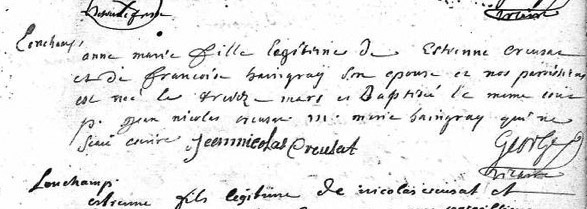 vicaire
Lonchamp
anne marie fille legitime de Estienne creusat
et de francoise haingray son epouse et nos paroissiens
est neé le treize mars et Baptisée le meme jour
p. jean nicolas creusat m. marie haingray qui ne
scait ecrire Jeannicolas Creusat
George
vicaire
Lonchamp
estienne fils legitime de nicolas creusat et